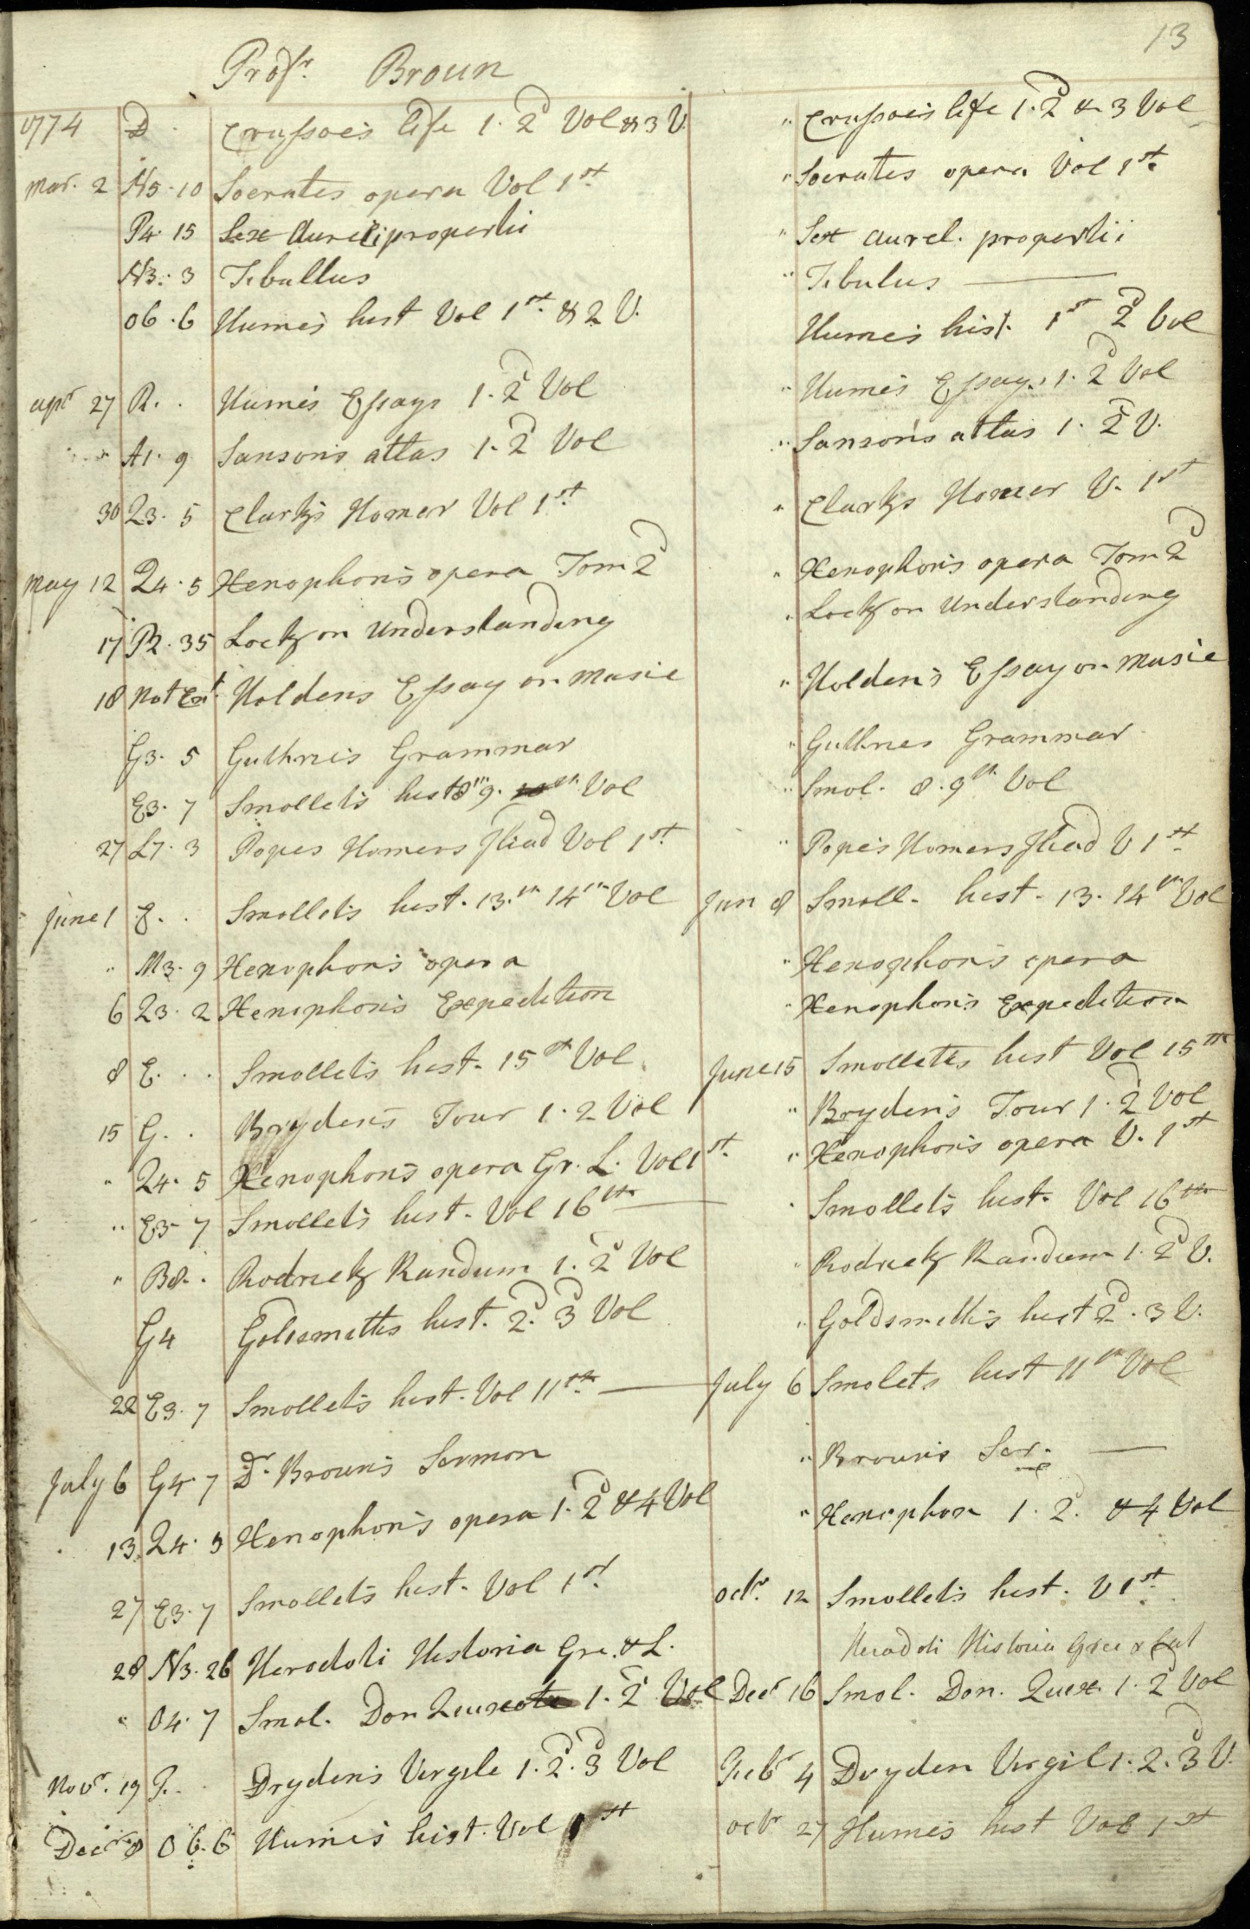 13
Profr. Broun
1774 D. Crusoe's life 1. 2d Vol & 3 V. " Crusoe's life 1. 2d & 3 Vol
Mar. 2 N5. 10 Socrates opera Vol 1st " Socrates opera Vol 1st
P4. 15 Sex Aureli propertii " Sex aurel. propertii
N3. 3 Tibullus " Tibulus
O6. 6 Humes hist Vol 1st & 2 V. Humes hist. 1st 2d Vol
apr 27 R. . Humes Essays 1. 2d Vol " Humes Essays 1. 2d Vol
" A1. 9 Sansons attas 1. 2d Vol " Sanson's attas 1. 2d V.
30 23. 5 Clarks Homer Vol 1st " Clarks Homer V. 1st
May 12 24. 5 Xenophon's opera Tom 2d " Xenophon's opera Tom 2d
17 P2. 35 Lock on Understanding " Lock on Understanding
18 Not Ent. Holdens Essay on Music " Holden's Essay on Music
G3. 5 Guthries Grammar " Guthries Grammar
E3. 7 Smollets hist 8th 9. Vol " Smol. 8. 9th Vol
27 L7. 3 Popes Homers Iliad Vol 1st " Pope's Homers Iliad V 1st
June 1 E. . Smollets hist. 13.th 14th Vol Jun 8 Smoll. hist. 13. 14th Vol
" M3. 9 Xenophon's opera " Xenophon's opera
6 23. 2 Xenophon's Expedition " Xenophon's Expedition
8 E. . . Smollets hist. 15th Vol June 15 Smolletts hist Vol 15th
15 G. . Bryden's Tour 1. 2 Vol " Bryden's Tour 1. 2d Vol
" 24. 5 Xenophon's opera Gr. L. Vol 1st. " Xenophon's opera V. 1st
" E3. 7 Smollets hist. Vol 16th " Smollets hist. Vol 16th
" B8. . Rodrick Randum 1. 2d Vol " Rodrick Randum 1. 2d V.
G4 Goldsmitts hist. 2d. 3d Vol " Goldsmitts hist 2d. 3 V.
22 E3. 7 Smollets hist. Vol 11th July 6 Smolets hist 11th Vol
July 6 G4. 7 Dr. Brouns Sermon " Brouns Ser.
13 24. 5 Xenophon's opera 1. 2d & 4 Vol " Xenophon 1. 2. & 4 Vol
27 E3. 7 Smollets hist. Vol 1st Octr. 12 Smollets hist. V 1st
28 N3. 26 Herodoti Historia Gre. & L. Heradoti Historia Grec & Lat
" O4. 7 Smol. Don Quixote 1. 2d Vol Decr 16 Smol. Don. Quex. 1. 2d Vol
Novr. 19 P. . Dryden's Virgile 1. 2d. 3d Vol Febr 4 Dryden Virgil 1. 2. 3d V.
Decr 8 O 6. 6 Humes hist. Vol 1st octr 27 Humes hist Vol 1st